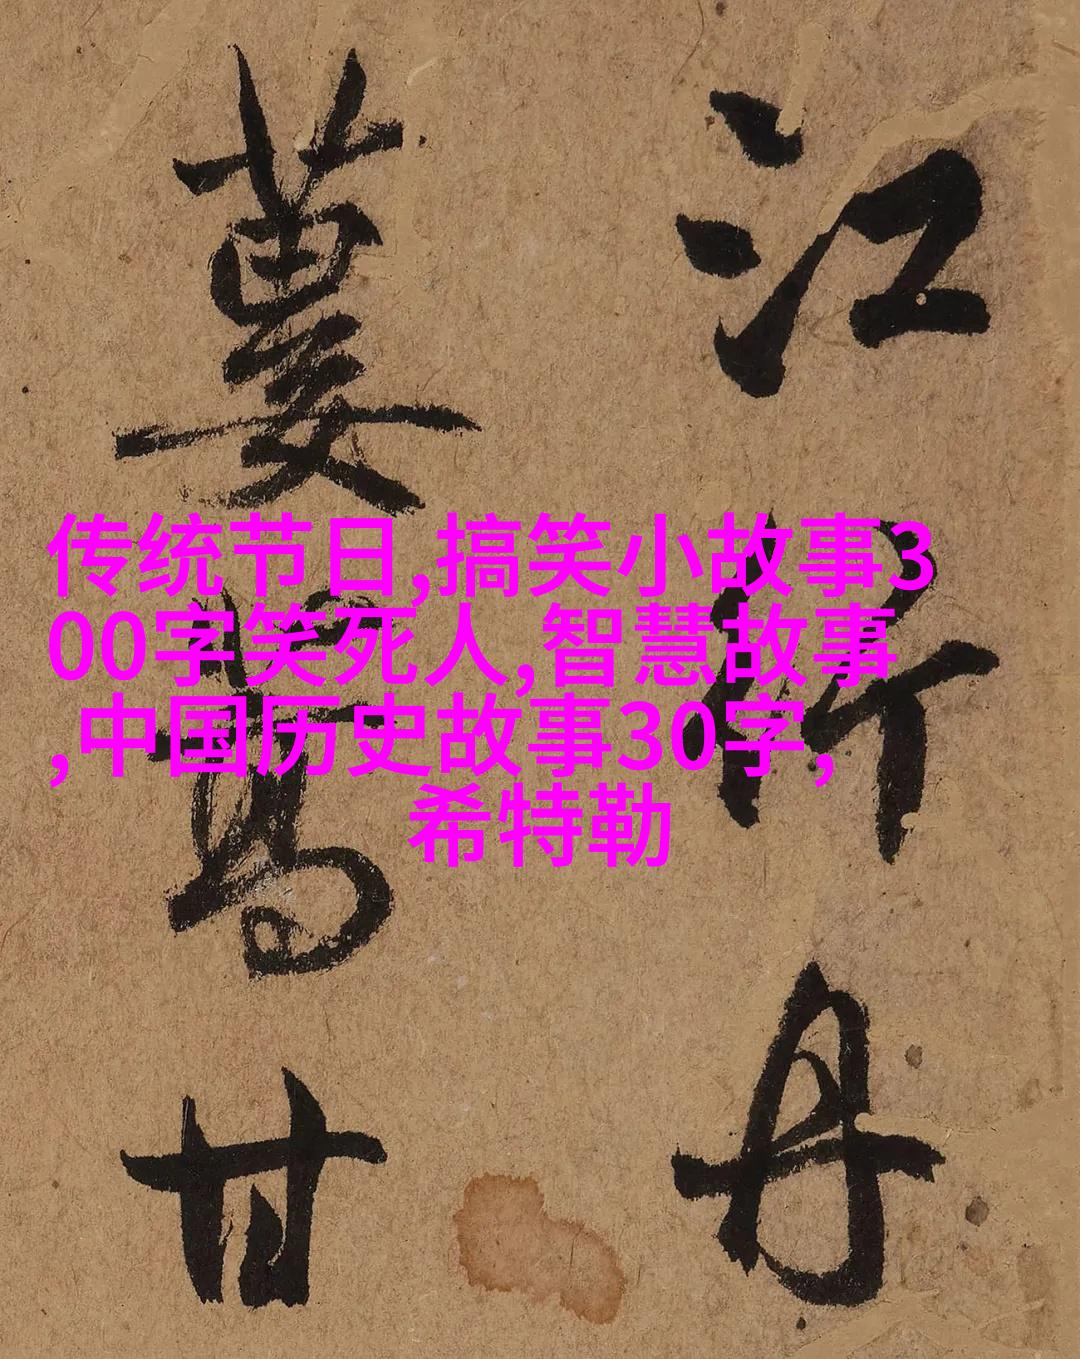 江行丹
蒌蒿甘
传统节日,搞笑小故事3
00字笑死人,智慧故事
,中国历史故事30字,
希特勒